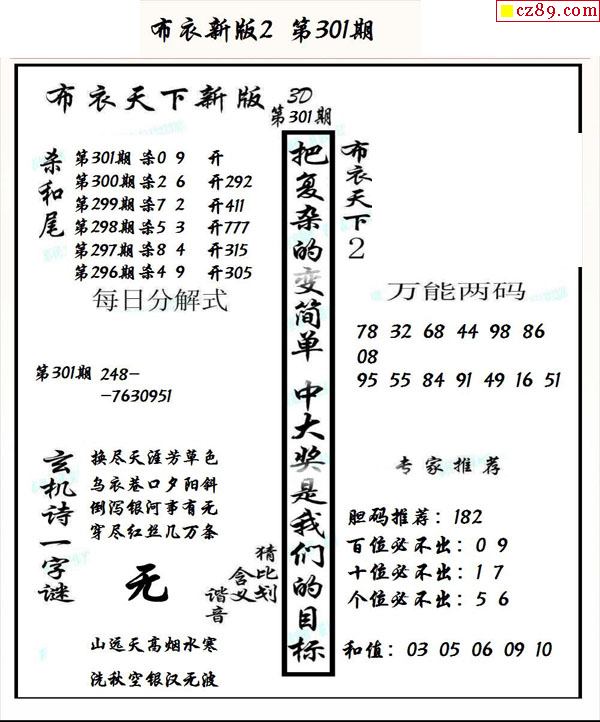 cz89.com
布衣新版2 第301期
布衣天下新版 3D
第301期
杀和尾
第301期 杀0 9 开
第300期 杀2 6 开292
第299期 杀7 2 开411
第298期 杀5 3 开777
第297期 杀8 4 开315
第296期 杀4 9 开305
每日分解式
第301期 248-
-7630951
玄机诗一字谜
换尽天涯芳草色
乌衣巷口夕阳斜
倒泻银河事有无
穿尽红丝几万条
无
猜比划
含义
谐音
山远天高烟水寒
洗秋空银汉无波
把复杂的变简单 中大奖是我们的目标
布衣天下2
万能两码
78 32 68 44 98 86
08
95 55 84 91 49 16 51
专家推荐
胆码推荐：182
百位必不出：0 9
十位必不出：1 7
个位必不出：5 6
和值：03 05 06 09 10